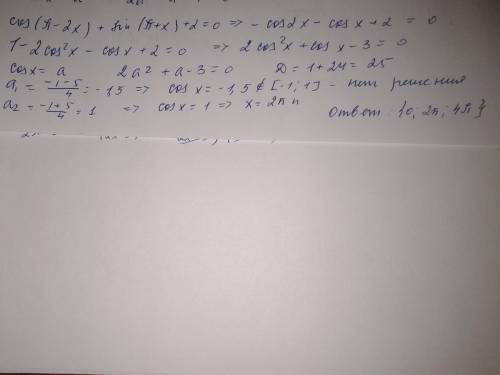 cos(π-2x) + sin(π+x)+2=0 => - cos2x - cosx+2 = 0
1-2cos²x - cosx+2=0 => 2cos²x+cosx-3=0
cosx= a 2a²+a-3=0 D=1+24=25
a₁ = (-1-5)/4 = -1,5 => cos x=-1,5 ∉ [-1; 1] - нет решения
a₂ = (-1+5)/4 = 1 => cosx=1 => x=2πn Ответ: {0; 2π; 4π}